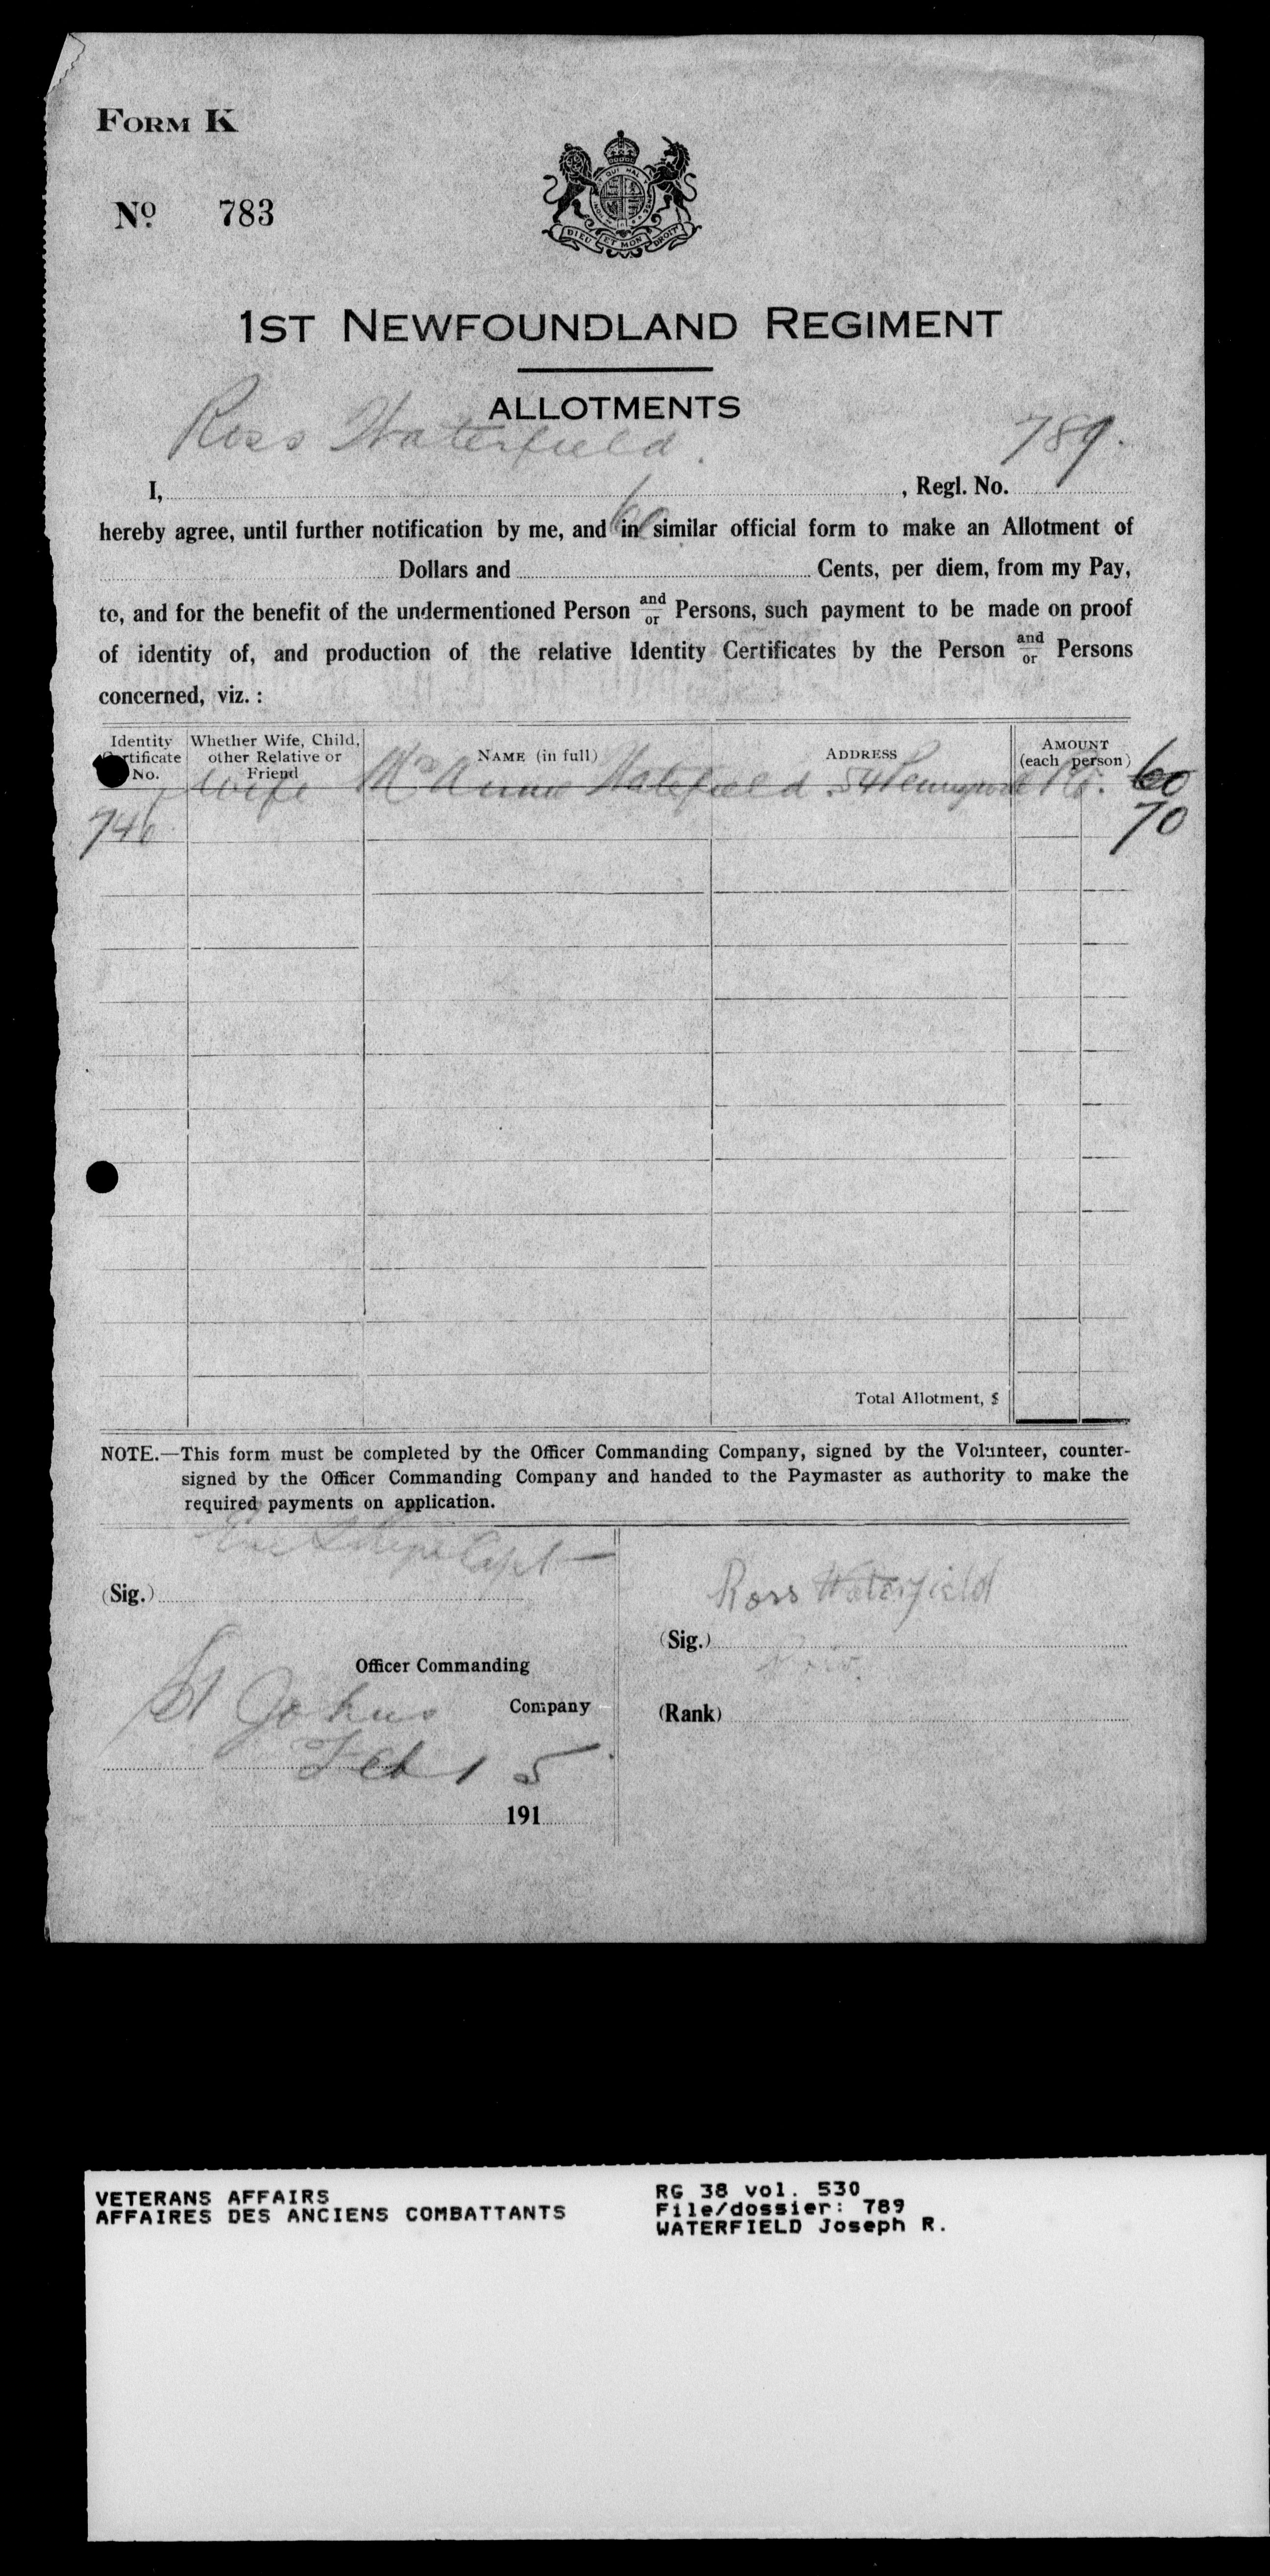 FORM K
No. 783
DIEU ET MON DROIT
1ST NEWFOUNDLAND REGIMENT
ALLOTMENTS
Ross Waterfield. 789.
I, , Regl. No.
60
hereby agree, until further notification by me, and in similar official form to make an Allotment of
Dollars and Cents, per diem, from my Pay,
to, and for the benefit of the undermentioned Person and/or Persons, such payment to be made on proof
of identity of, and production of the relative Identity Certificates by the Person and/or Persons
concerned, viz. :
Identity Certificate No. Whether Wife, Child, other Relative or Friend NAME (in full) ADDRESS AMOUNT (each person)
Wife Mrs Annie Waterfield . 54 Rd. 60
746 70
Total Allotment, $
NOTE.—This form must be completed by the Officer Commanding Company, signed by the Volunteer, counter-
signed by the Officer Commanding Company and handed to the Paymaster as authority to make the
required payments on application.
Capt
(Sig.)
Officer Commanding
St Johns Company
Feb 15
191
Ross Waterfield
(Sig.)
Priv.
(Rank)
VETERANS AFFAIRS
AFFAIRES DES ANCIENS COMBATTANTS
RG 38 vol. 530
File/dossier: 789
WATERFIELD Joseph R.